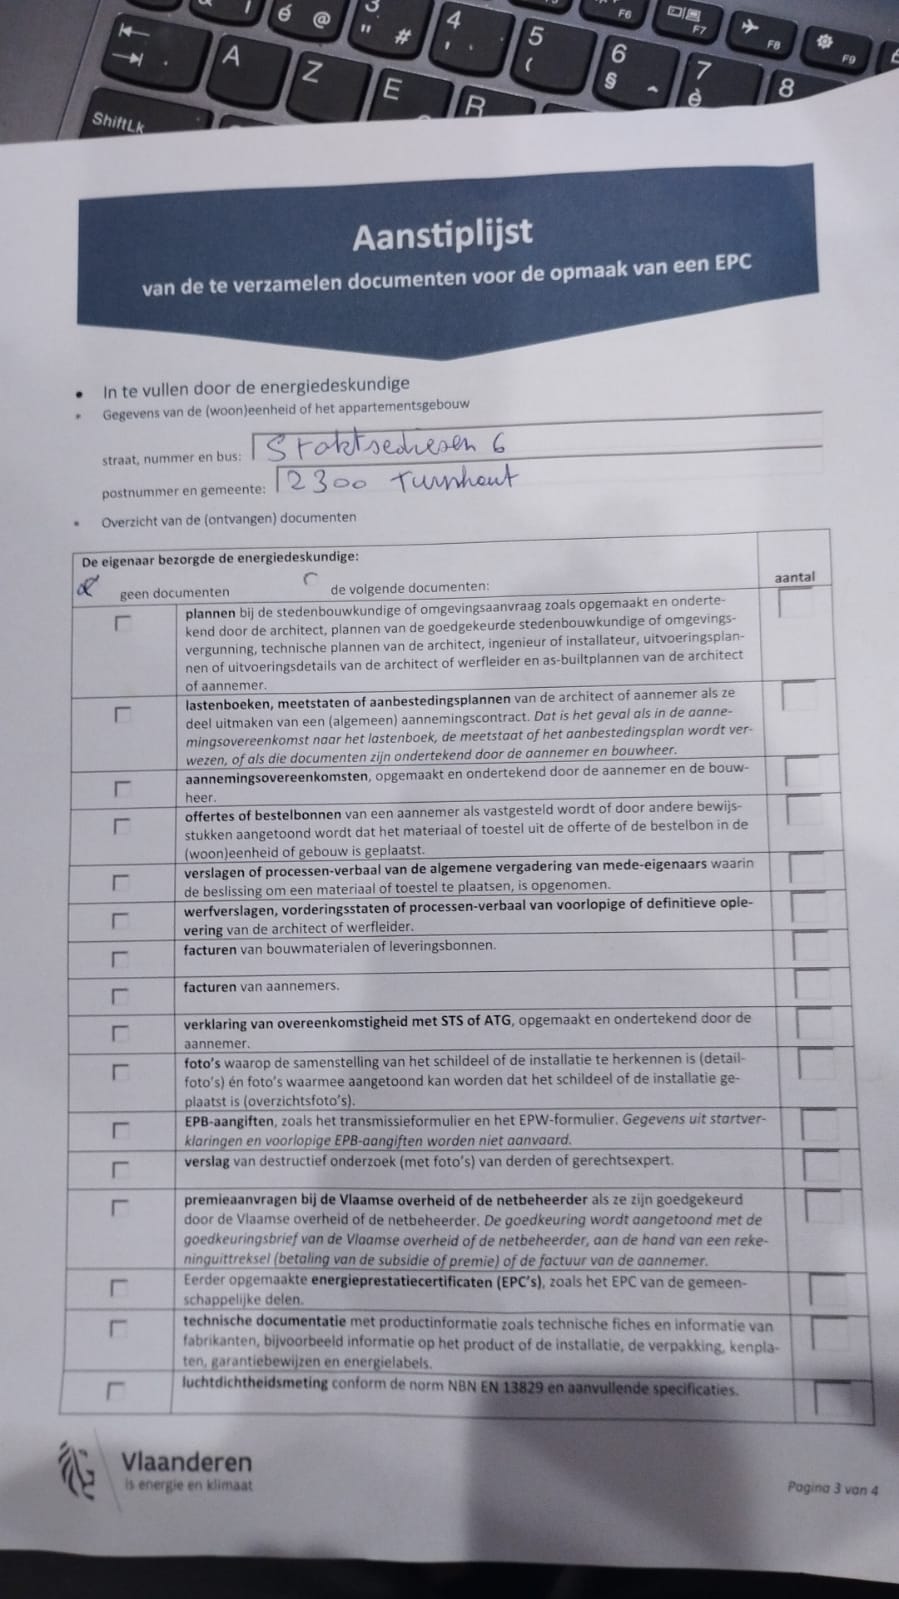 é @ 3 " # 4 ' 5 ( 6 § ^ 7 è 8
F6 F7 F8 F9
A Z E R
ShiftLk
Aanstiplijst
van de te verzamelen documenten voor de opmaak van een EPC
• In te vullen door de energiedeskundige
• Gegevens van de (woon)eenheid of het appartementsgebouw
straat, nummer en bus: 6
postnummer en gemeente: 2300 Turnhout
• Overzicht van de (ontvangen) documenten
De eigenaar bezorgde de energiedeskundige:
geen documenten de volgende documenten: aantal
plannen bij de stedenbouwkundige of omgevingsaanvraag zoals opgemaakt en onderte-
kend door de architect, plannen van de goedgekeurde stedenbouwkundige of omgevings-
vergunning, technische plannen van de architect, ingenieur of installateur, uitvoeringsplan-
nen of uitvoeringsdetails van de architect of werfleider en as-builtplannen van de architect
of aannemer.
lastenboeken, meetstaten of aanbestedingsplannen van de architect of aannemer als ze
deel uitmaken van een (algemeen) aannemingscontract. Dat is het geval als in de aanne-
mingsovereenkomst naar het lastenboek, de meetstaat of het aanbestedingsplan wordt ver-
wezen, of als die documenten zijn ondertekend door de aannemer en bouwheer.
aannemingsovereenkomsten, opgemaakt en ondertekend door de aannemer en de bouw-
heer.
offertes of bestelbonnen van een aannemer als vastgesteld wordt of door andere bewijs-
stukken aangetoond wordt dat het materiaal of toestel uit de offerte of de bestelbon in de
(woon)eenheid of gebouw is geplaatst.
verslagen of processen-verbaal van de algemene vergadering van mede-eigenaars waarin
de beslissing om een materiaal of toestel te plaatsen, is opgenomen.
werfverslagen, vorderingsstaten of processen-verbaal van voorlopige of definitieve ople-
vering van de architect of werfleider.
facturen van bouwmaterialen of leveringsbonnen.
facturen van aannemers.
verklaring van overeenkomstigheid met STS of ATG, opgemaakt en ondertekend door de
aannemer.
foto's waarop de samenstelling van het schildeel of de installatie te herkennen is (detail-
foto's) én foto's waarmee aangetoond kan worden dat het schildeel of de installatie ge-
plaatst is (overzichtsfoto's).
EPB-aangiften, zoals het transmissieformulier en het EPW-formulier. Gegevens uit startver-
klaringen en voorlopige EPB-aangiften worden niet aanvaard.
verslag van destructief onderzoek (met foto's) van derden of gerechtsexpert.
premieaanvragen bij de Vlaamse overheid of de netbeheerder als ze zijn goedgekeurd
door de Vlaamse overheid of de netbeheerder. De goedkeuring wordt aangetoond met de
goedkeuringsbrief van de Vlaamse overheid of de netbeheerder, aan de hand van een reke-
ninguittreksel (betaling van de subsidie of premie) of de factuur van de aannemer.
Eerder opgemaakte energieprestatiecertificaten (EPC's), zoals het EPC van de gemeen-
schappelijke delen.
technische documentatie met productinformatie zoals technische fiches en informatie van
fabrikanten, bijvoorbeeld informatie op het product of de installatie, de verpakking, kenpla-
ten, garantiebewijzen en energielabels.
luchtdichtheidsmeting conform de norm NBN EN 13829 en aanvullende specificaties.
Vlaanderen
is energie en klimaat
Pagina 3 van 4